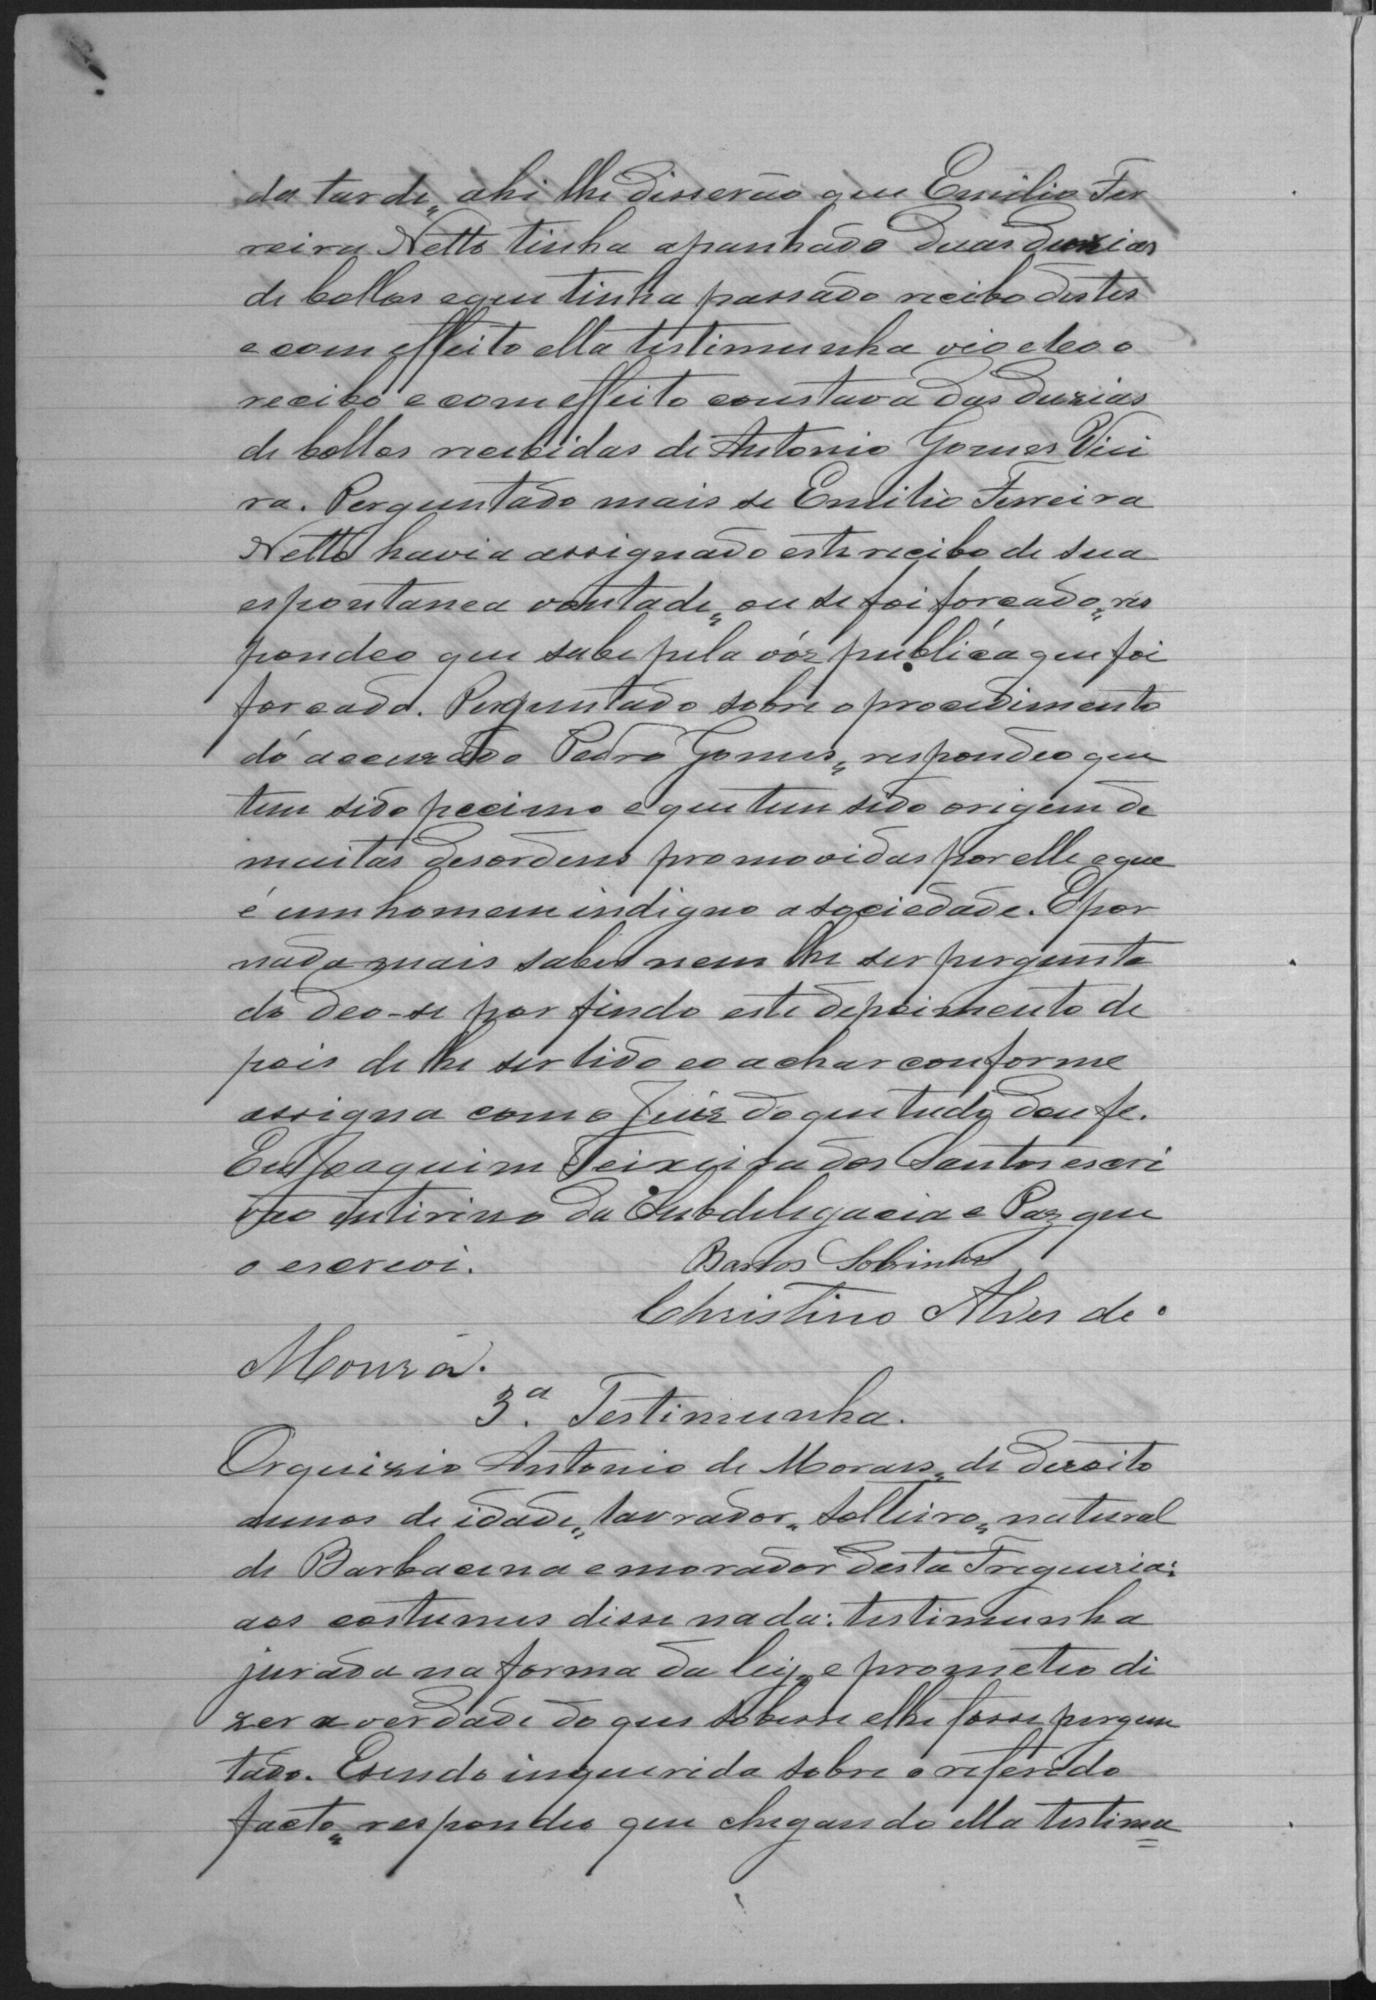 da tarde, ahi lhe disserão que Emilio Fer
reira Netto tinha apanhado duas duzias
de bollos e que tinha passado recibo destes
e com effeito ella testimunha vio e leo o
recibo e com effeito constava das duzias
de bollos recibidas de Antonio Gomes Viei
ra. Perguntado mais se Emilio Ferreira
Netto havia assignado este recibo de sua
espontanea vontade, ou se foi forcado, res
pondeo que sabe pela vóz publica que foi
forcado. Perguntado sobre o procedimento
do accuzado Pedro Gomes, respondeo que
tem sido pecimo e que tem sido origem de
muitas desordens promovidas por elle e que
é um homem indigno a sociedade. E por
nada mais saber nem lhe ser pergunta
do deo-se por findo este depoimento de
pois de lhe ser lido e o achar conforme
assigna com o Juiz do que tudo dou fe.
Eu Joaquim Teixeira dos Santos escri
vão intirino da Subdelegacia e Paz que
o escrevi. Bastos Sobrinho
Christino Alves de
Moura.
3.ª Testimunha.
Orquizio Antonio de Moraes, de dezoito
annos de idade, lavrador, solteiro, natural
de Barbacena e morador desta Freguezia:
aos costumes disse nada: testimunha
jurada na forma da ley, e prometeo di
zer a verdade do que sobesse e lhe fosse pergun
tado. E sendo inquerida sobre o referido
facto, respondeo que chegando ella testimu=